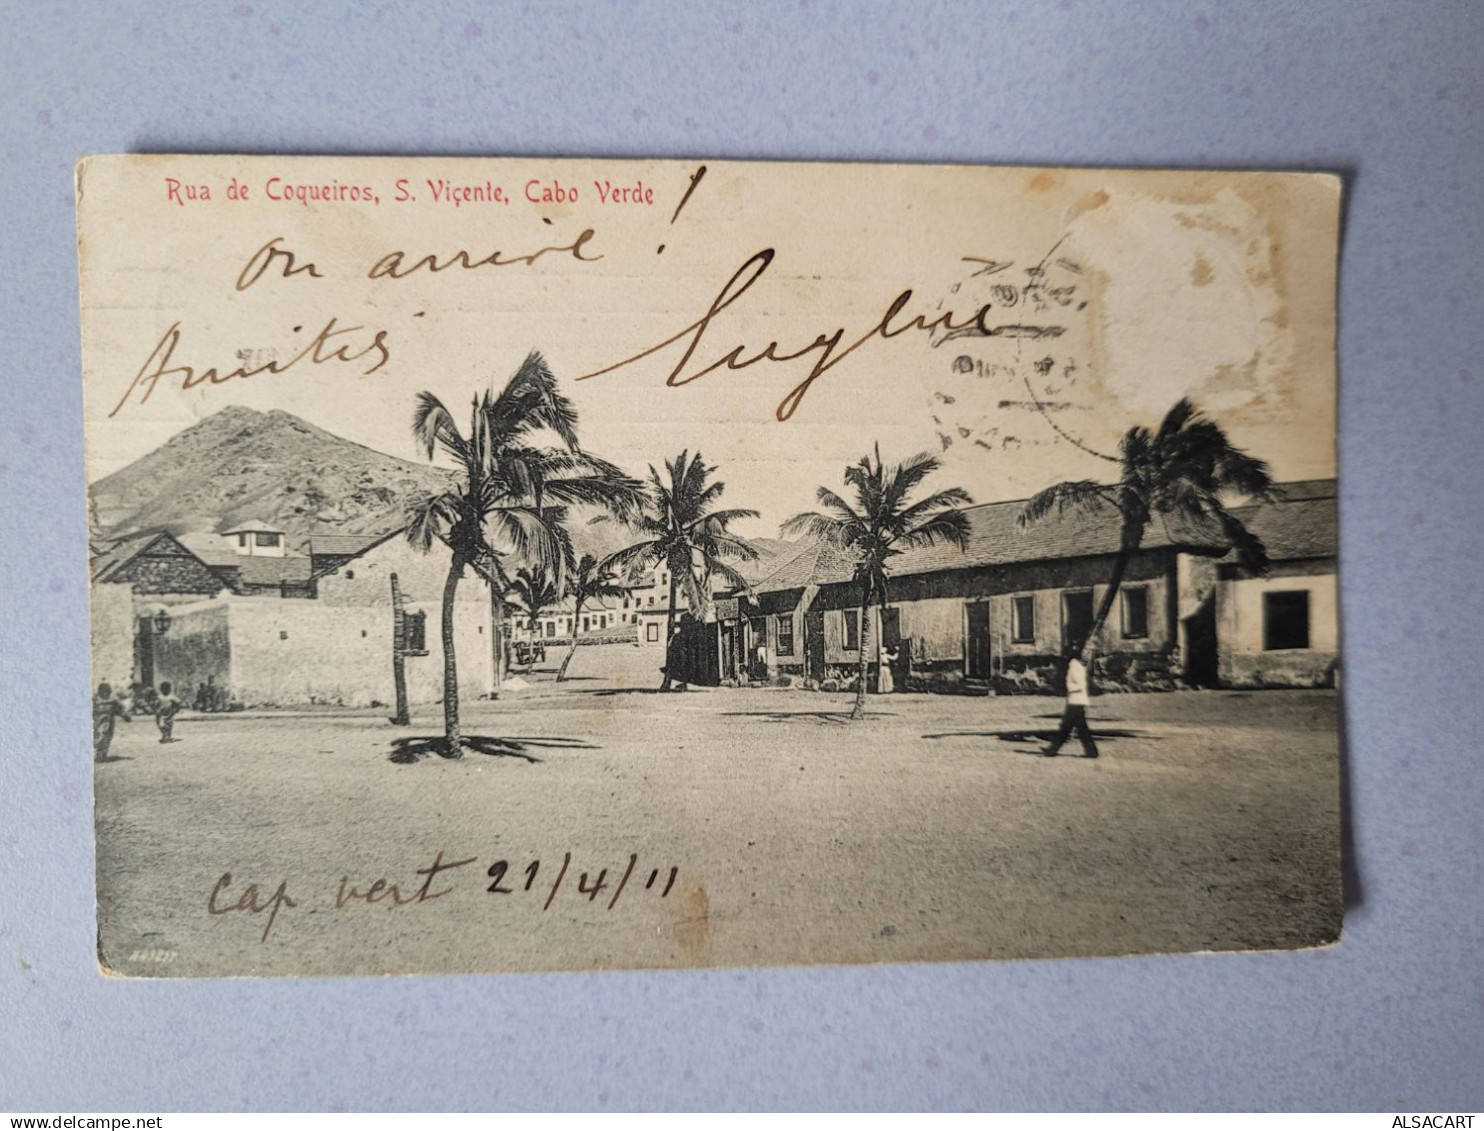 Rua de Coqueiros, S. Viçente, Cabo Verde
On arrive !
Amitiés Eugène
Cap vert 21/4/11
delcampe.net
ALSACART